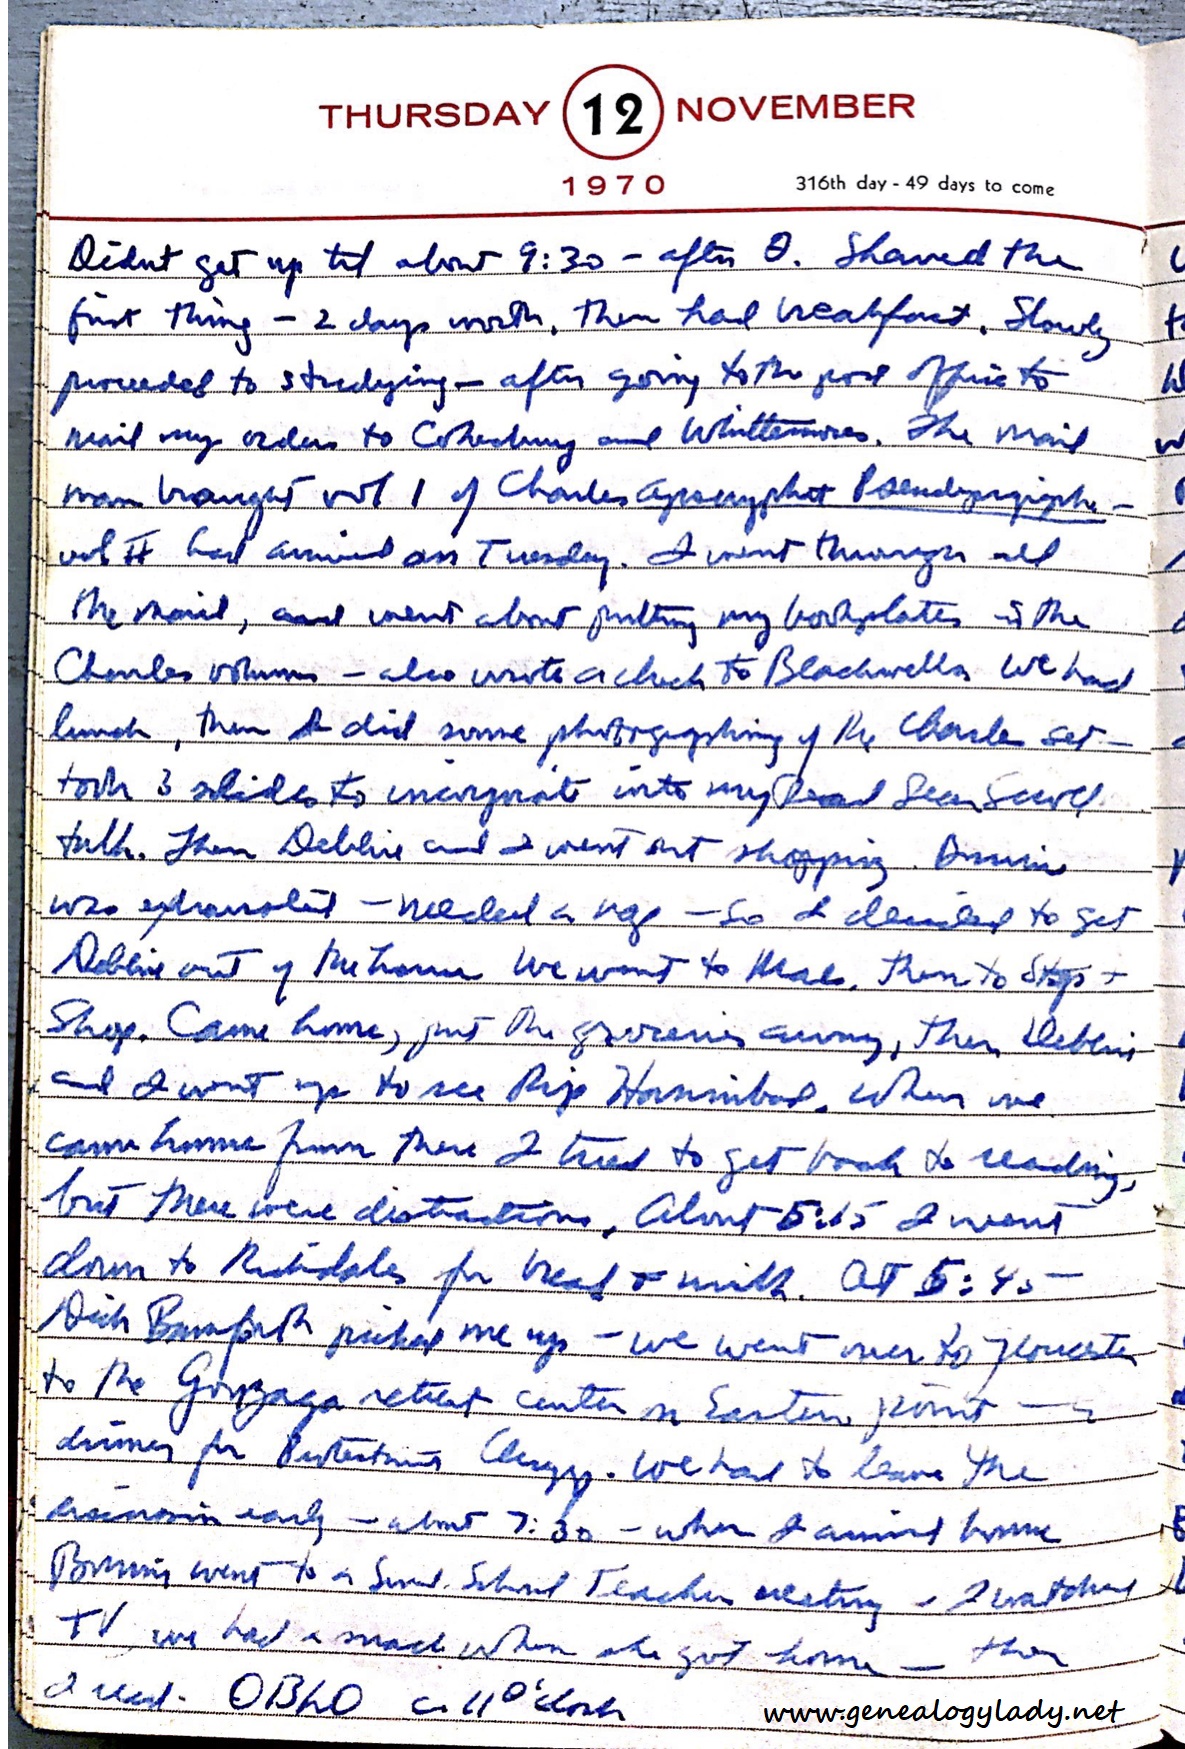 THURSDAY 12 NOVEMBER
1970
316th day - 49 days to come
Didnt get up til about 9:30 - after θ. Shaved the
first thing - 2 days worth, then had breakfast. Slowly
proceeded to studying - after going to the post office to
mail my orders to Cokesbury and Whittemores. The mail
man brought vol 1 of Charles Pseudepigrapha -
vol II had arrived on Tuesday. I went through all
the mail, and went about putting my bookplates in the
Charles volumes - also wrote a check to Blackwells. We had
lunch, then I did some photographing of the Charles set -
took 3 slides to incorporate into my Dead Sea Scroll
talk. Then Debbie and I went out shopping.
was exhausted - needed a nap - so I decided to get
Debbie out of the house. We went to then to Stop +
Shop. Came home, put the groceries away, then Debbie
and I went up to see Rip When we
came home from there I tried to get back to reading,
but there were distractions. About 5:15 I went
down to for bread + milk. At 5:45 -
Dick Bamforth picked me up - we went over to Gloucester
to the Gonzaga retreat center on Eastern point -
dinner for Protestant Clergy. We had to leave the
early - about 7:30 - when I arrived home
went to a Sund. School Teacher meeting - I watched
TV we had a snack when she got home - then
I read. ca 11 O'clock
www.genealogylady.net